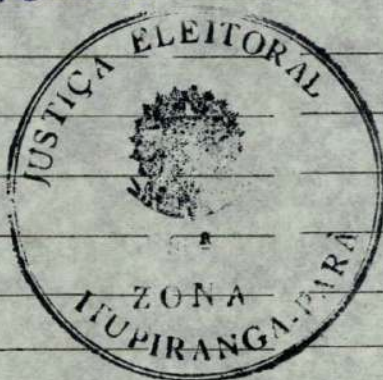 JUSTIÇA ELEITORAL
ª
ZONA
ITUPIRANGA-PARÁ